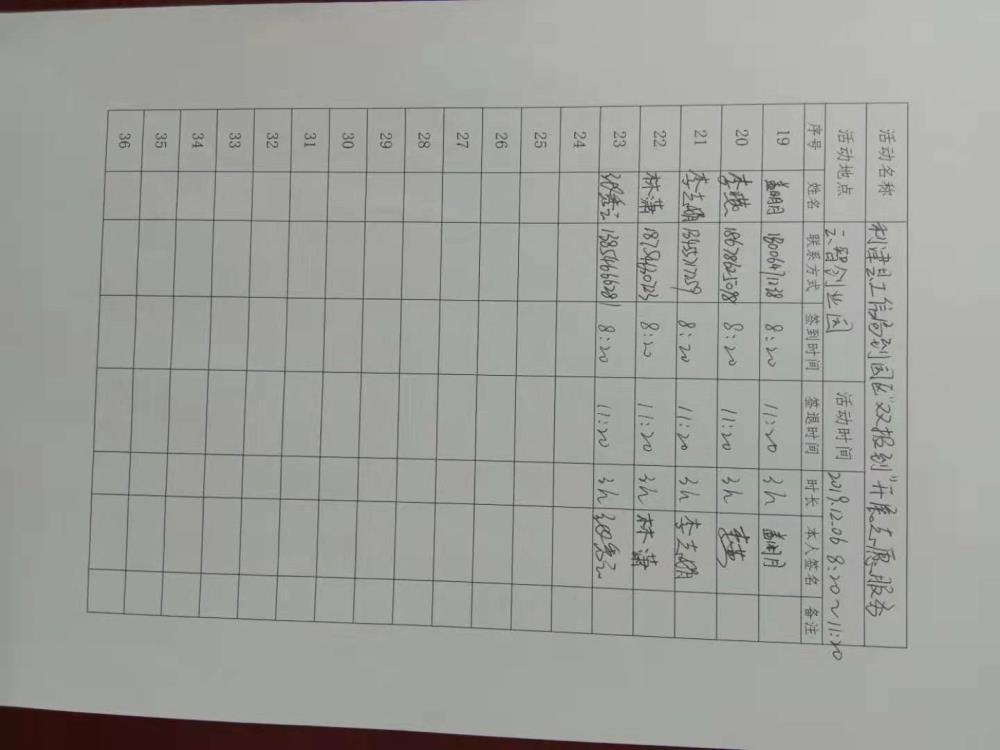 活动名称 利津县工信局到园区"双报到"开展志愿服务
活动地点 三智创业园 活动时间 2019.12.06 8:20~11:20
序号 姓名 联系方式 签到时间 签退时间 时长 本人签名 备注
19 孟明月 18006471238 8:20 11:20 3h 孟明月
20 李燕 18678625098 8:20 11:20 3h 李燕
21 李志鹏 8:20 11:20 3h 李志鹏
22 林潇 8:20 11:20 3h 林潇
23 13854666281 8:20 11:20 3h
24
25
26
27
28
29
30
31
32
33
34
35
36